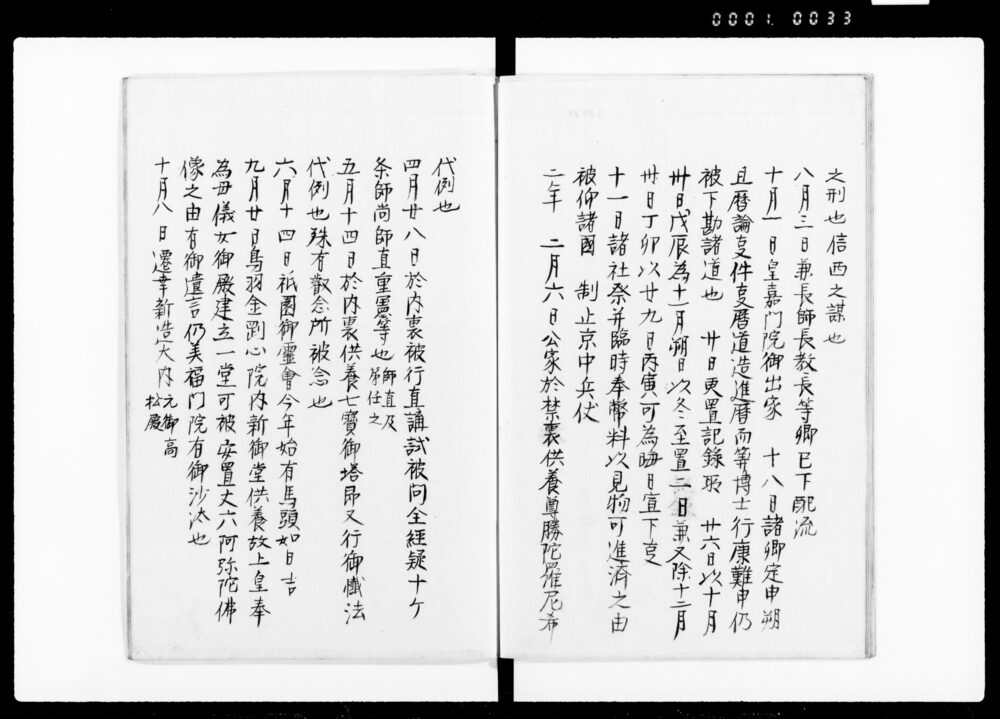 0001 0033
之刑也信西之謀也
八月三日兼長師長教長等卿已下配流
十月一日皇嘉门院御出家 十八日諸卿定申朔
旦曆論叓件叓曆道造進曆而筭博士行康難申仍
被下勘諸道也 廿日更置記錄所 廿六日以十月
卅日戊辰為十一月朔日以冬至置二日兼又除十二月
卅日丁卯以廿九日丙寅可為晦日宣下叓
十一日諸社祭并臨時奉幣料以見物可進済之由
被仰諸國 制止京中兵仗
二年 二月六日公家於禁裏供養尊勝陀羅尼希
代例也
四月廿八日於内裏被行直講試被问全經疑十ケ
条師尚師直重憲等也師直及
第任之
五月十四日於内裏供養七寶御塔昂又行御懺法
代例也殊有叡念所被念也
六月十四日祇園御霊會今年始有馬頭如日吉
九月廿日鳥羽金剛心院内新御堂供養故上皇奉
為母儀女御殿建立一堂可被安置丈六阿弥陀佛
像之由有御遺言仍美福门院有御沙汰也
十月八日遷幸新造大内元御高
松殿